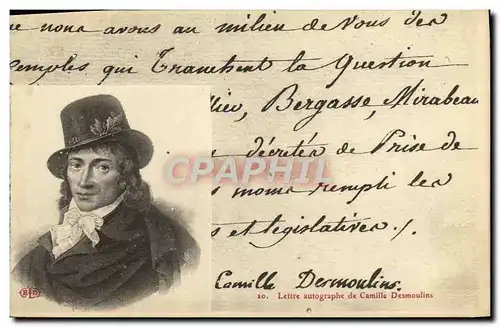 nous avons au milieu de Vous des
Exemples qui Tranchent la Question
Bergasse, Mirabeau
décretés de Prise de
moins rempli les
et législatives ./.
Camille Desmoulins.
20. Lettre autographe de Camille Desmoulins
CPAPHIL.COM
ELD